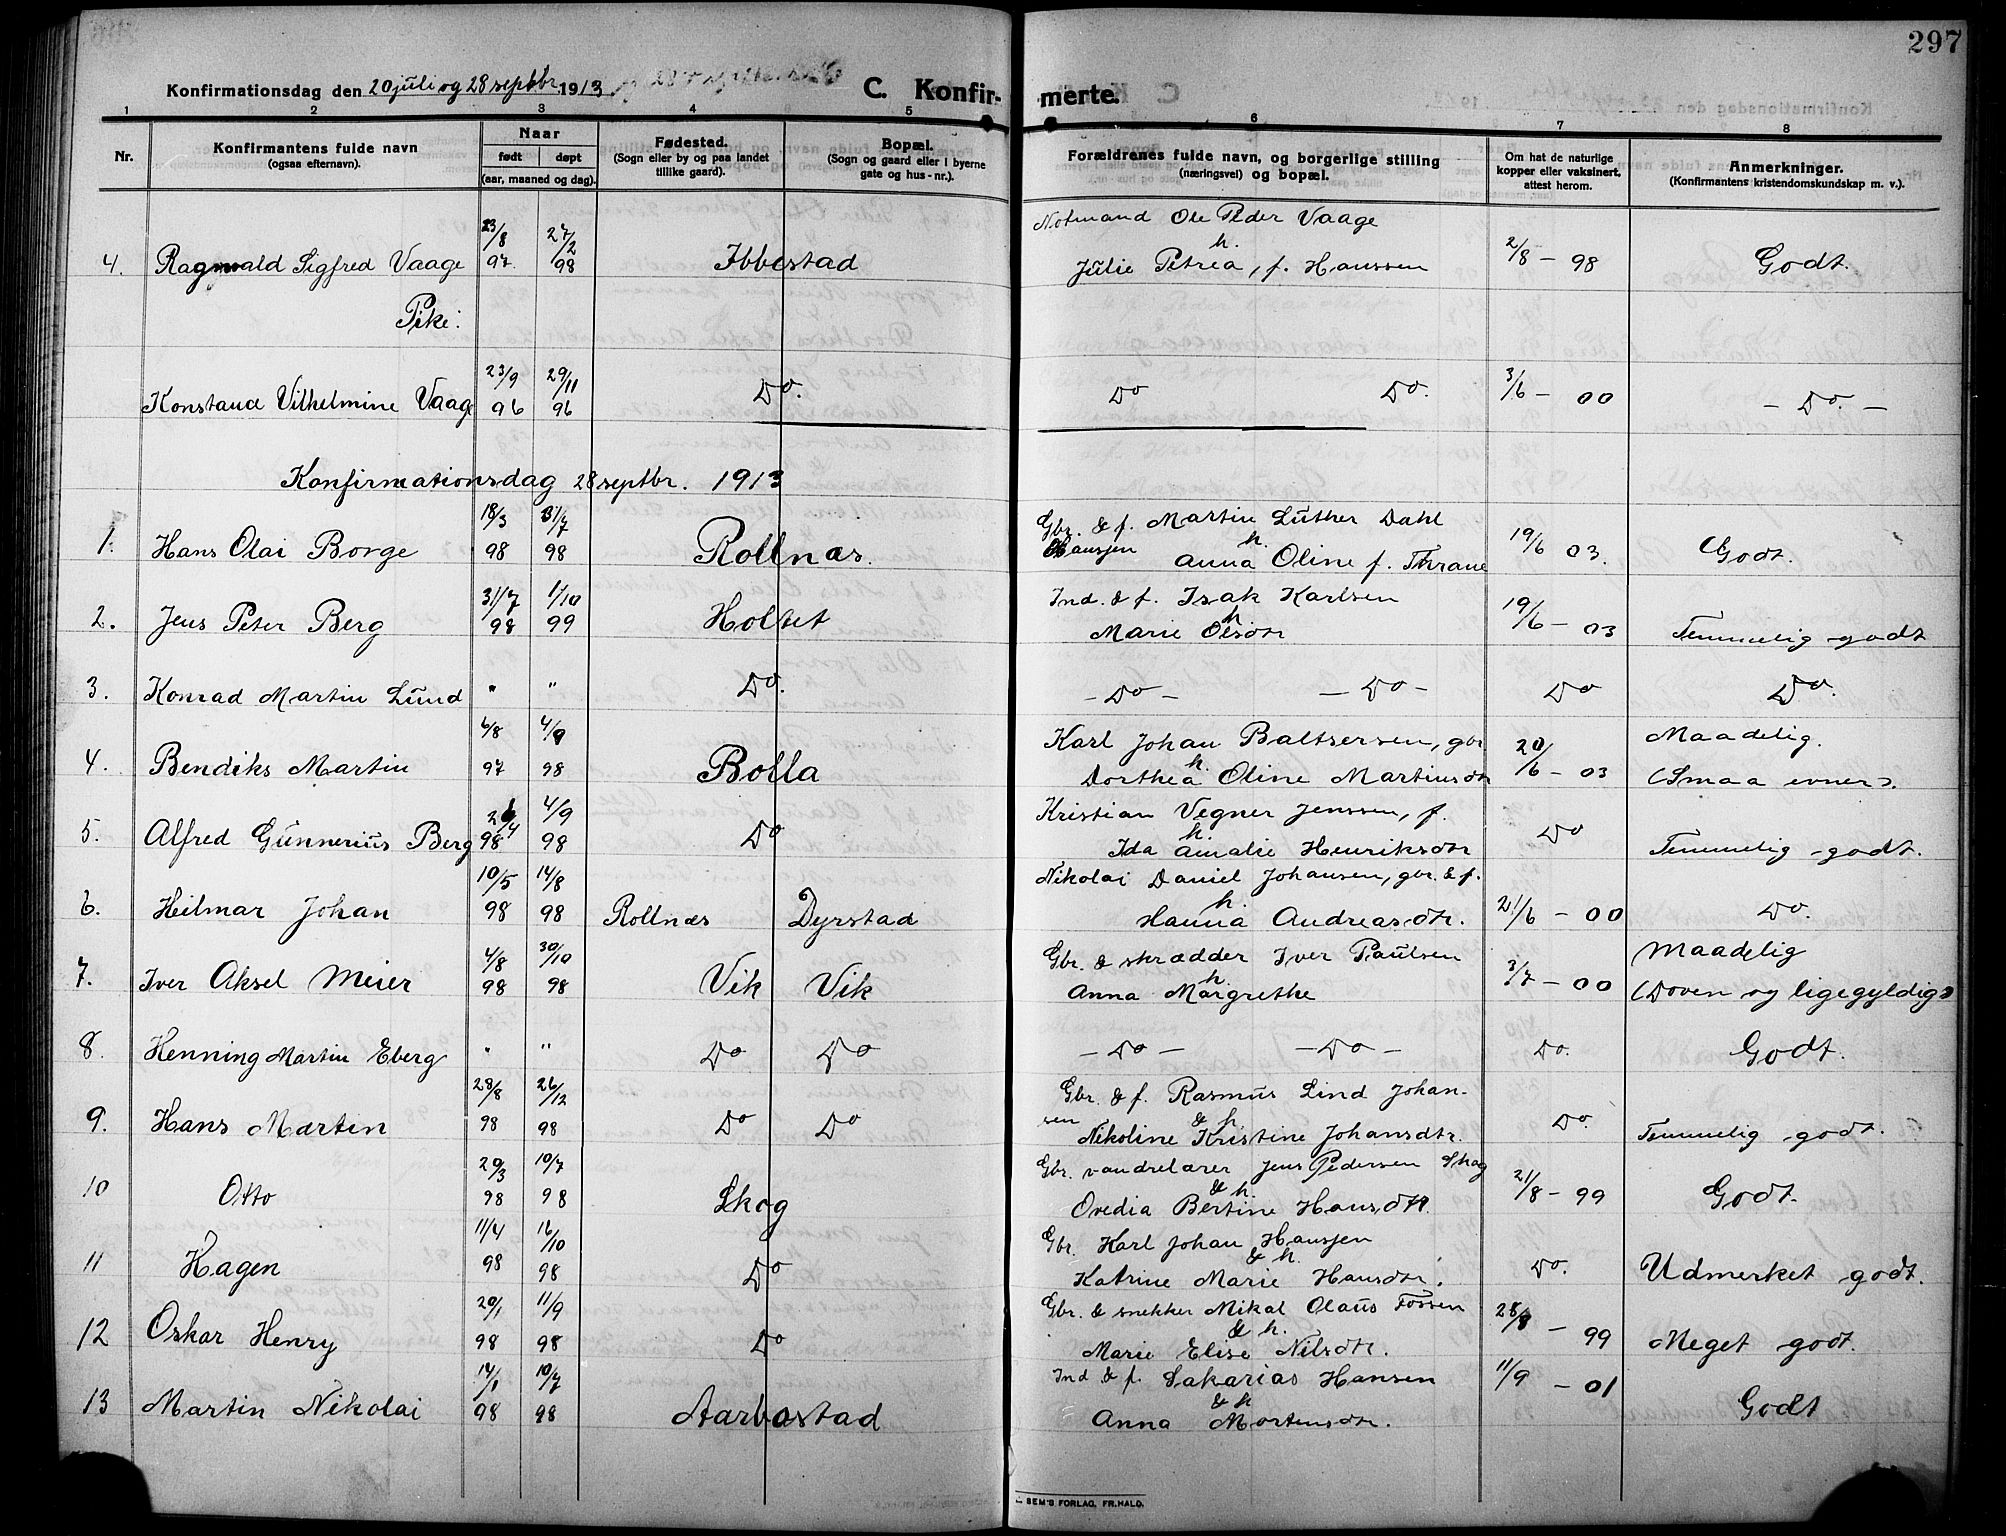 297
Konfirmationsdag den 20 juli og 28 septbr. 1913
C. Konfir- merte.
1 2 3 4 5 6 7 8
Nr.
Konfirmantens fulde navn
(ogsaa efternavn).
Naar
født døpt
(aar, maaned og dag).
Fødested.
(Sogn eller by og paa landet
tillike gaard).
Bopæl.
(Sogn og gaard eller i byerne
gate og hus-nr.).
Forældrenes fulde navn, og borgerlige stilling
(næringsvei) og bopæl.
Om hat de naturlige
kopper eller vaksinert,
attest herom.
Anmerkninger.
(Konfirmantens kristendomskundskap m. v.).
23/8 27/2 Notmand Ole Peder Vaage
4. Ragnvald Sigfred Vaage 97 98 Ibbestad & h. Julie Petrea, f. Hanssen 2/8 - 98 Godt.
Pike:
23/9 29/11
Konstance Vilhelmine Vaage 96 96 Do. Do Do. 3/6 - 00 - Do. -
Konfirmationsdag 28 septbr. 1913
18/3 31/7 Gbr. & f. Martin Luther Dahl
1. Hans Olai Borge 98 98 Rollnæs. Hansen h. Anna Oline f. Thrane 19/6 03. Godt.
31/7 1/10 Ind. & f. Isak Karlsen
2. Jens Peter Berg 98 99 Holtet h. Marie Olsdtr 19/6 - 03 Temmelig godt
3. Konrad Martin Lund " " Do. - Do - - Do - Do Do.
6/8 4/9 Karl Johan Baltsersen, gbr. 20/6 - 03 Maadelig.
4. Bendiks Martin 97 98 Bolla h. Dorthea Oline Martinsdtr (Smaa evner).
4/9 Kristian Vegner Jenssen, f.
5. Alfred Gunnerius Berg 98 98 Do h. Ida Amalie Henriksdtr Do Temmelig godt.
10/5 14/8 Nikolai Daniel Johansen, gbr. & f.
6. Hilmar Johan 98 98 Rollnæs Dyrstad h. Hanna Andreasdtr. 21/6 - 00 Do.
4/8 30/10 Gbr. & skrædder Iver Paulsen Maadelig
7. Iver Aksel Meier 98 98 Vik Vik h. Anna Margrethe 3/7 - 00 (Doven og ligegyldig)
8. Henning Martin Eberg " " Do Do - Do - - Do - Do. Godt.
28/8 26/12 Gbr. & f. Rasmus Lind Johan-
9. Hans Martin 98 98 Do Do sen & h. Nikoline Kristine Johansdtr. Do. Temmelig godt.
20/3 10/7 Gbr. vandrelærer Jens Pedersen Skog
10 Otto 98 98 Skog & h. Ovedia Bertine Hansdtr. 21/8 - 99 Godt.
11/4 16/10 Gbr. Karl Johan Hansen
11 Hagen 98 98 Do & h. Katrine Marie Hansdtr. Do. Udmerket godt.
20/1 11/9 Gbr. & snekker Mikal Olaus Fossen
12 Oskar Henry 98 98 Do & h. Marie Elise Nilsdtr. 28/8 - 99 Meget godt.
14/1 10/7 Ind & f. Sakarias Hansen
13 Martin Nikolai 98 98 Aarbostad & h Anna Mortensdtr. 11/9 - 01 Godt
SEM'S FORLAG, FR.HALD.